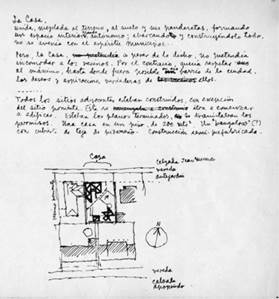 La Casa.
Unida, engolada al terreno, al suelo y sus panderetas, formando
un espacio interior autónomo; abarcando y construyéndolo todo.
no se avenía con el espíritu municipal.
Pero, la Casa, a pesar de lo dicho, no pretendía
incomodar a los vecinos. Por el contrario, quería respetar
al máximo, hasta donde fuera posible, barrio de la ciudad.
los deseos y aspiraciones de ellos.
Todos los sitios adyacentes estaban construidos, con excepción
del sitio poniente. Este iba a comenzar
a edificar. Estaban los planos terminados, se tramitaban los
permisos. Una casa en un piso, de 200 mts² Un "bungalow" (?)
con cubier. de teja de pizarreño. Construcción semi-prefabricada.
Casa
Calzada Jean Mermoz
vereda
antejardín
vereda
calzada